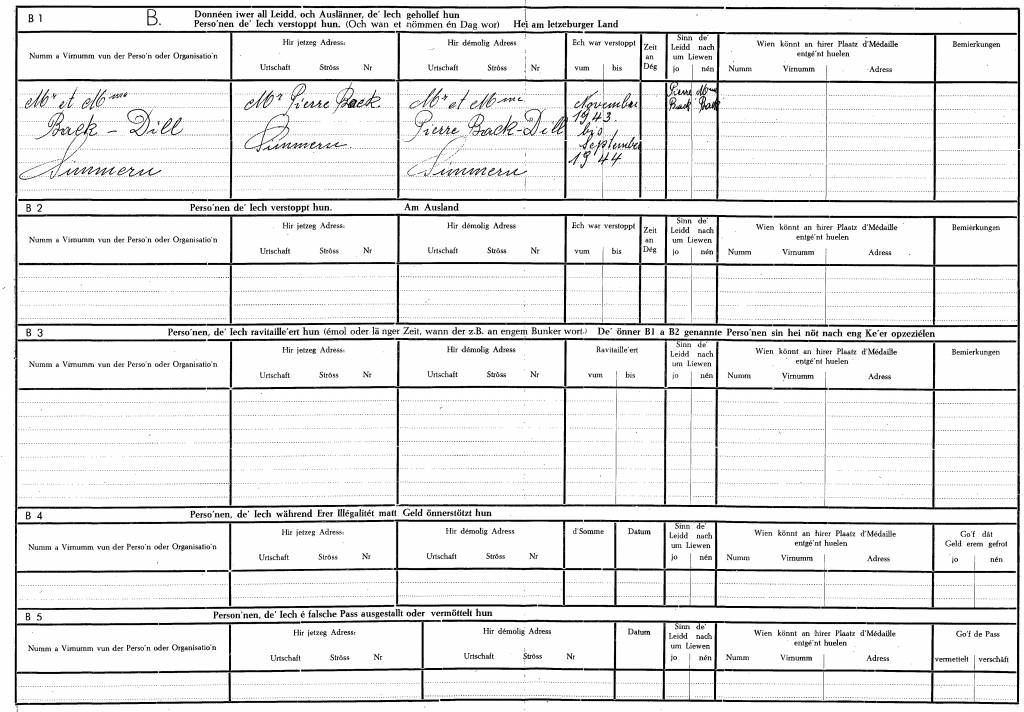 B 1 B. Donnéen iwer all Leidd, och Auslänner, de' Iech gehollef hun
Perso'nen de' Iech verstoppt hun. (Och wan et nömmen én Dag wor) Hei am letzeburger Land
Numm a Virnumm vun der Perso'n oder Organisatio'n
Hir jetzeg Adress:
Urtschaft Ströss Nr
Hir démolig Adress
Urtschaft Ströss Nr
Ech war verstoppt
vum bis
Zeit
an
Dég
Sinn de'
Leidd nach
um Liewen
jo nén
Wien könnt an hirer Plaatz d'Médaille
entgé'nt huelen
Numm Virnumm Adress
Bemierkungen
Mr et Mme
Back – Dill
Simmern
Mr Pierre Back
Simmern.
Mr et Mme
Pierre Back-Dill
Simmern
November
1943.
bis
September
1944
Pierre Mme
Back Back
B 2 Perso'nen de' Iech verstoppt hun. Am Ausland
Numm a Virnumm vun der Perso'n oder Organisatio'n
Hir jetzeg Adress:
Urtschaft Ströss Nr
Hir démolig Adress
Urtschaft Ströss Nr
Ech war verstoppt
vum bis
Zeit
an
Dég
Sinn de'
Leidd nach
um Liewen
jo nén
Wien könnt an hirer Plaatz d'Médaille
entgé'nt huelen
Numm Virnumm Adress
Bemierkungen
B 3 Perso'nen, de' Iech ravitaille'ert hun (émol oder lä nger Zeit, wann der z.B. an engem Bunker wort.) De' önner B1 a B2 genannte Perso'nen sin hei nöt nach eng Ke'er opzeziélen
Numm a Virnumm vun der Perso'n oder Organisatio'n
Hir jetzeg Adress:
Urtschaft Ströss Nr
Hir démolig Adress
Urtschaft Ströss Nr
Ravitaille'ert
vum bis
Sinn de'
Leidd nach
um Liewen
jo nén
Wien könnt an hirer Plaatz d'Médaille
entgé'nt huelen
Numm Virnumm Adress
Bemierkungen
B 4 Perso'nen, de' Iech während Erer Illégalitét matt Geld önnerstötzt hun
Numm a Virnumm vun der Perso'n oder Organisatio'n
Hir jetzeg Adress:
Urtschaft Ströss Nr
Hir démolig Adress
Urtschaft Ströss Nr
d'Somme
Datum
Sinn de'
Leidd nach
um Liewen
jo nén
Wien könnt an hirer Plaatz d'Médaille
entgé'nt huelen
Numm Virnumm Adress
Go'f dát
Geld erem gefrot
jo nén
B 5 Person'nen, de' Iech é falsche Pass ausgestallt oder vermöttelt hun
Numm a Virnumm vun der Perso'n oder Organisatio'n
Hir jetzeg Adress:
Urtschaft Ströss Nr
Hir démolig Adress
Urtschaft Ströss Nr
Datum
Sinn de'
Leidd nach
um Liewen
jo nén
Wien könnt an hirer Plaatz d'Médaille
entgé'nt huelen
Numm Virnumm Adress
Go'f de Pass
vermettelt verschäft